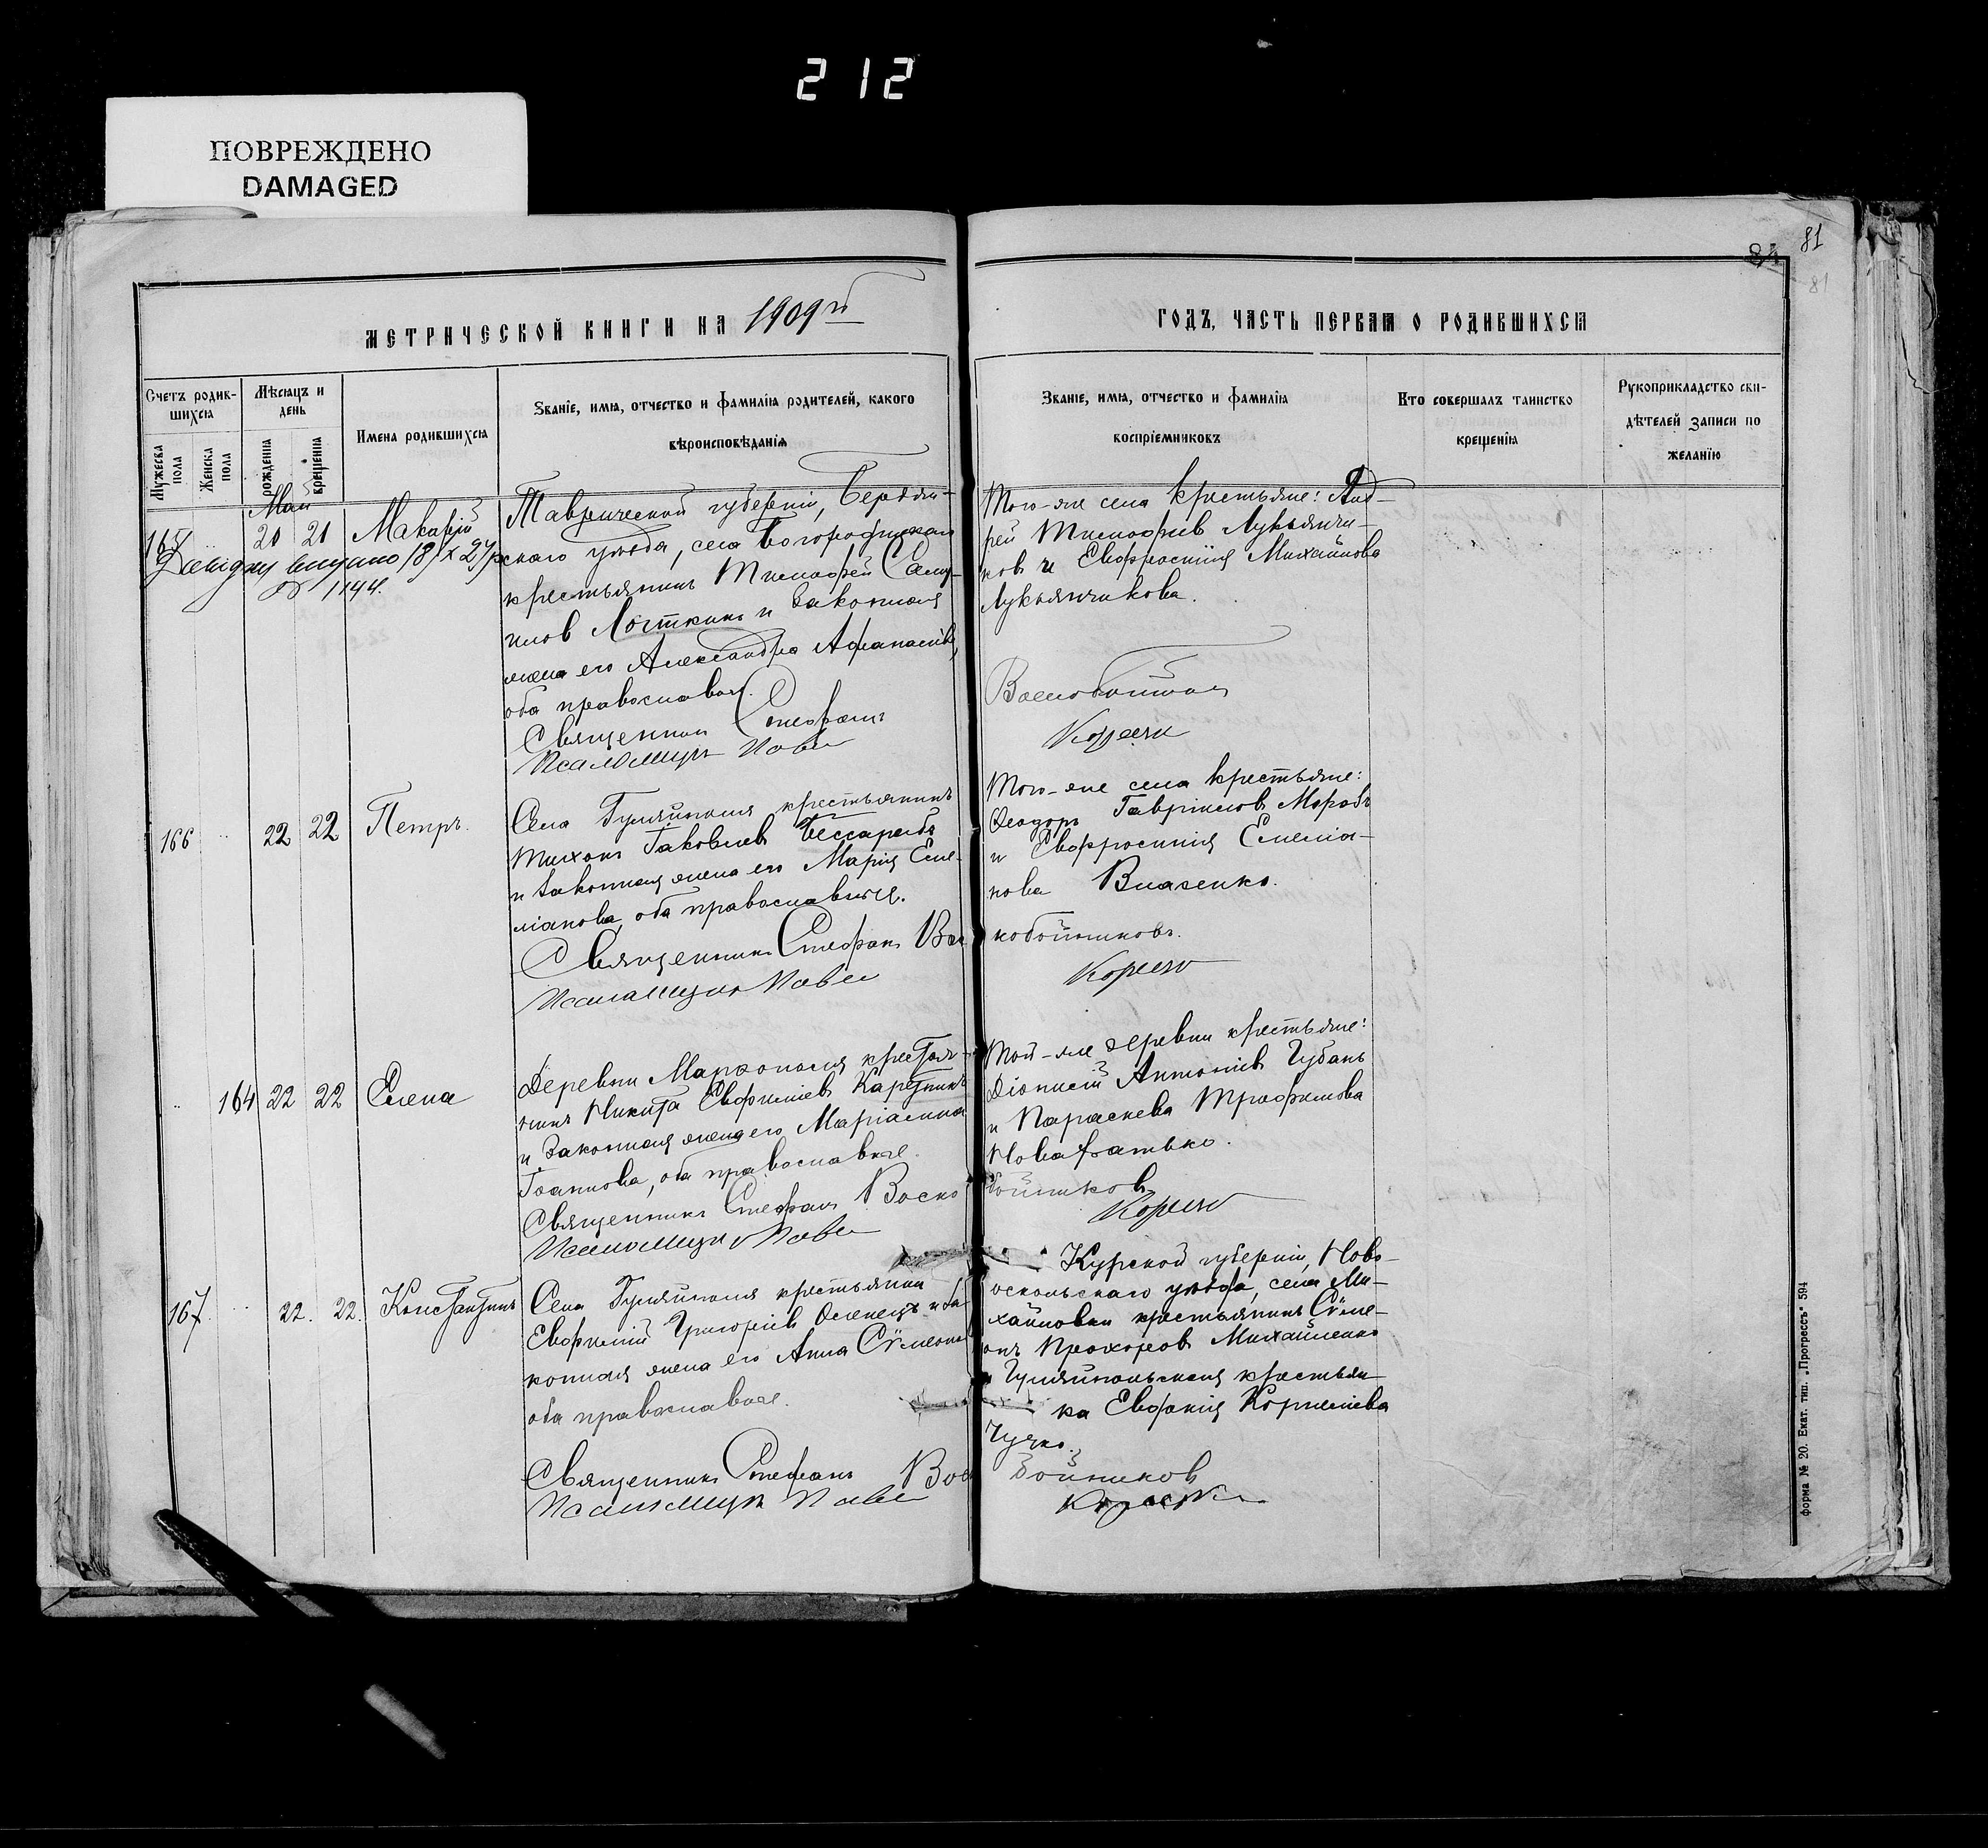 212
ПОВРЕЖДЕНО
DAMAGED
81
81
МЕТРИЧЕСКОЙ КНИГИ НА 1909й
ГОДЪ, ЧАСТЬ ПЕРВАЯ О РОДИВШИХСЯ
Счетъ родившихся
Мужеска пола
Женска пола
Мѣсяцъ и день
рожденія
крещенія
Имена родившихся
Званіе, имя, отчество и фамилія родителей, какого
вѣроисповѣданія
Званіе, имя, отчество и фамилія
воспріемниковъ
Кто совершалъ таинство
крещенія
Рукоприкладство сви-
дѣтелей записи по
желанію
Май
165 20 21 Макарій
№ 1144.
Таврической губерніи, Бердян-
скаго уѣзда, села Богородицкаго
крестьянинъ Тимофей Саму-
илов Лоткинъ и законная
жена его Александра Афанасіева,
оба православные.
Священник Стефанъ
Псаломщикъ Павел
Того-же села крестьяне: Анд-
рей Тимофеев Лукьянчи-
ков и Евфросинія Михайлова
Лукьянчикова.
Коренев
166 22 22 Петръ.
Села Гуляйполя крестьянинъ
Тихонъ Іаковлев Бессарабъ
и законная жена его Марія Еме-
ліанова, оба православные.
Священникъ Стефанъ Вос
Псаломщикъ Павел
Того-же села крестьяне:
Феодоръ Гавріилов Морозъ
и Евфросинія Емеліа-
нова Власенко.
кобойников.
164 22 22 Елена
Деревни Марфополя крестья-
нинъ Никита Евфиміев Каретникъ
и законная жена его Маріамна
Іоаннова, оба православные.
Священникъ Стефан Воско
Псаломщикъ Павел
Той-же деревни крестьяне:
Діонисій Антоніев Губань
и Параскева Трофимова
Новохатько.
бойников
167. 22. 22. Константинъ
Села Гуляйполя крестьянин
Евфимій Григоріев Оленецъ и за-
конная жена его Анна Сѵмеонов
оба православные.
Священникъ Стефанъ Вос
Псаломщикъ Павел
Курской губерніи, Ново-
оскольскаго уѣзда, села Ми-
хайловки крестьянинъ Сѵме-
онъ Прохоров Михайленко
и Гуляйпольская крестьян-
ка Евфимія Корниліева
Чучко.
бойников
форма № 20. Екат. тип. „Прогрессъ" 594